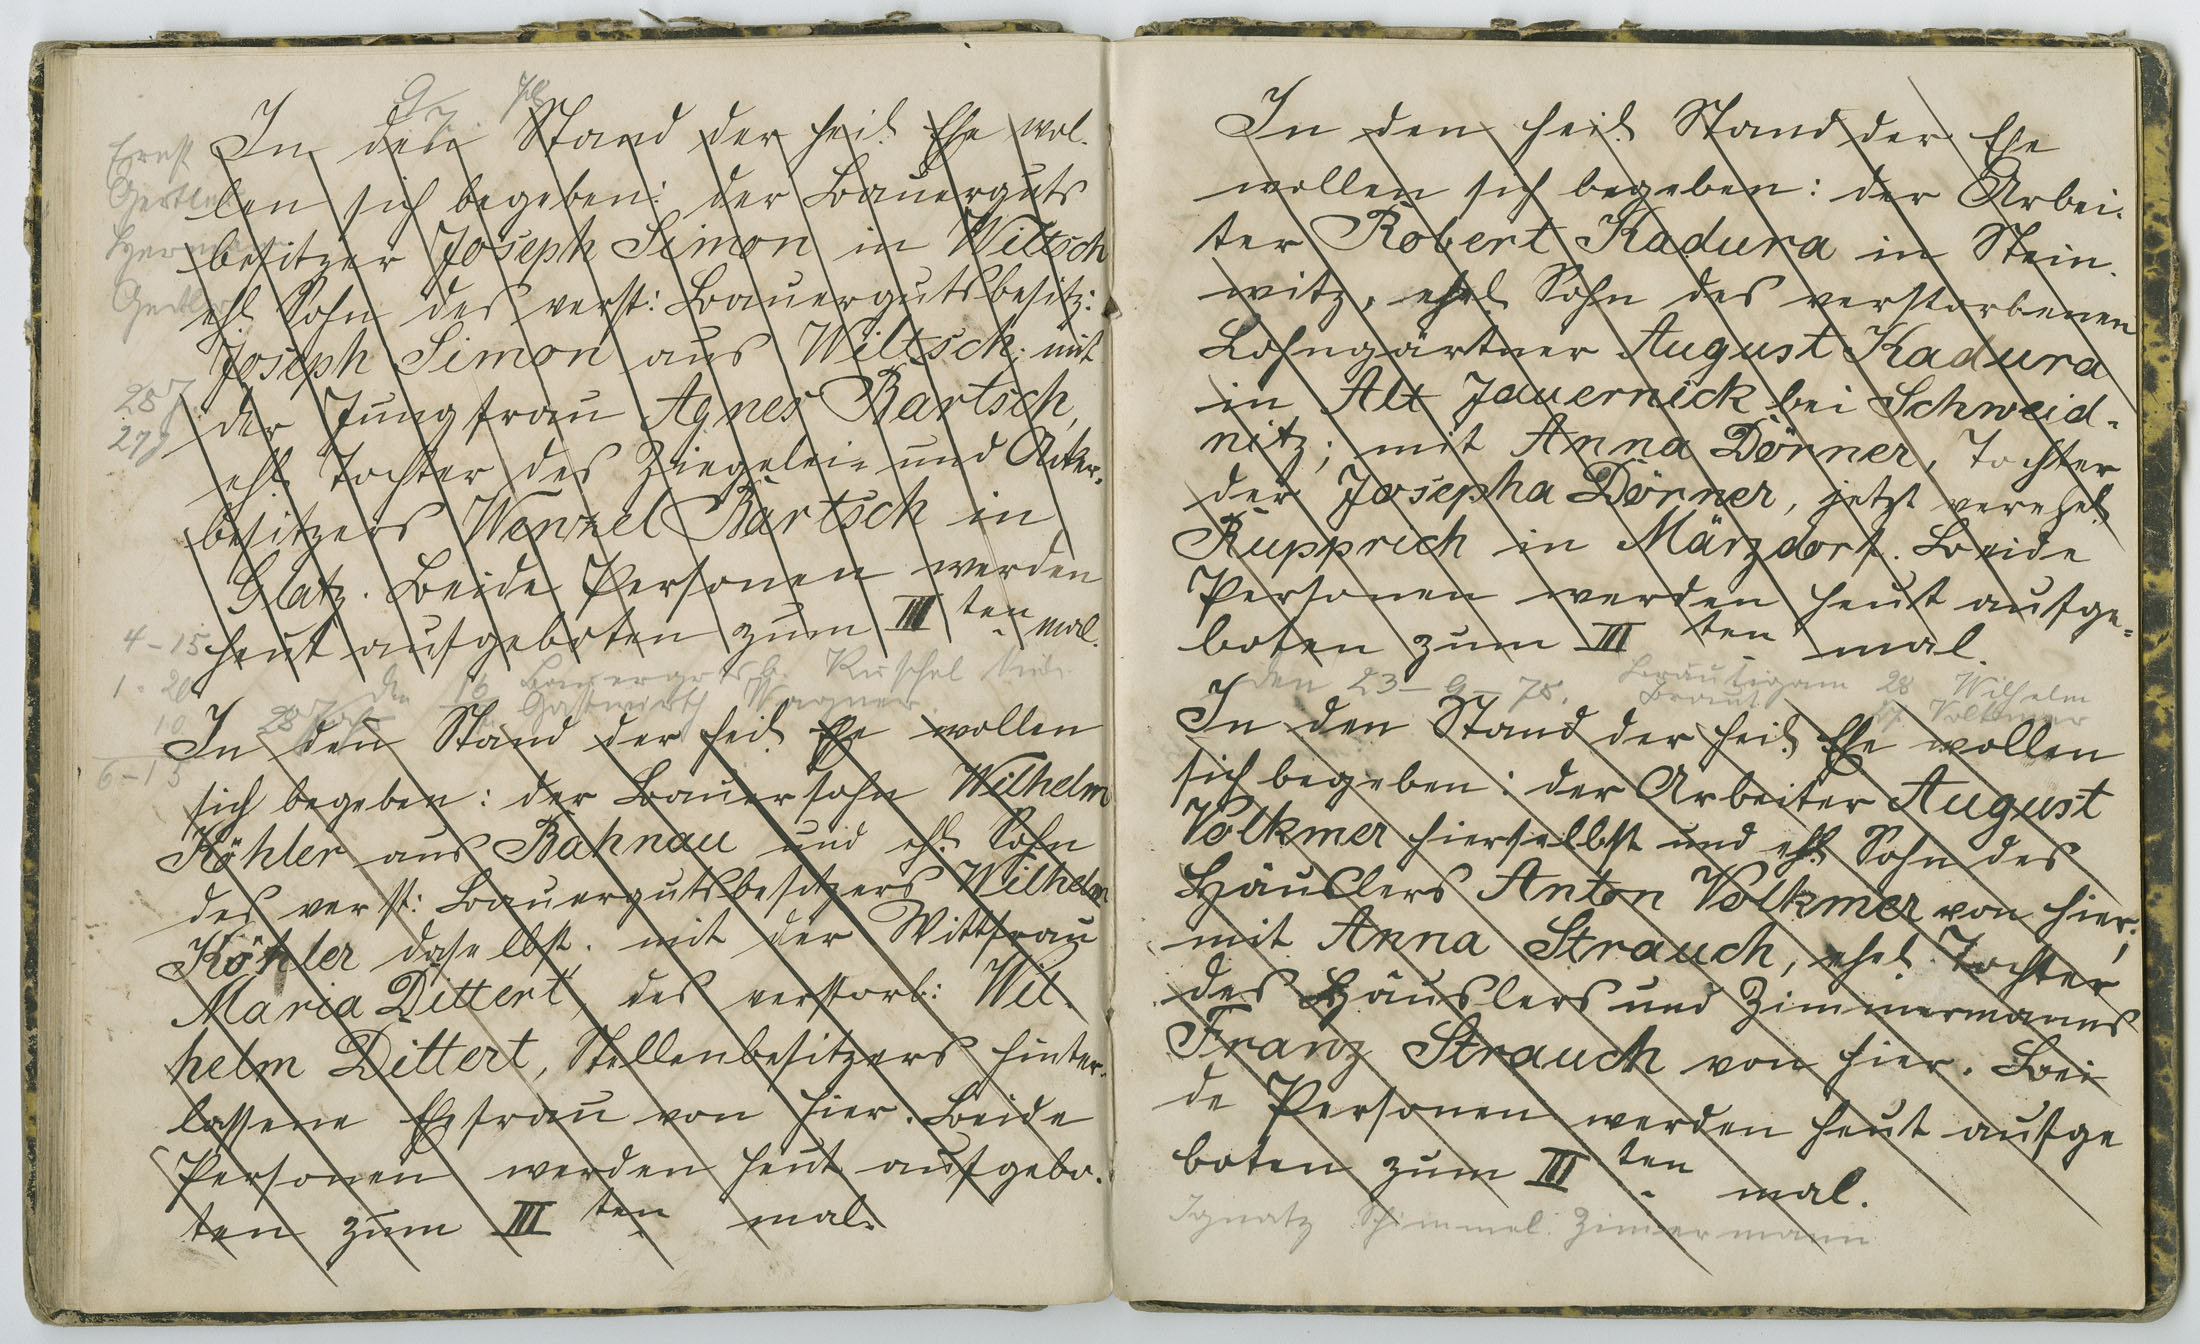 Ernst
Hermann
In den Stand der heil. Ehe wol-
len sich begeben: der Bauerguts
besitzer Joseph Simon in Wiltsch
ehl. Sohn des verst: Bauergutsbesitz:
Joseph Simon aus Wiltsch; mit
der Jungfrau Agnes Bartsch,
ehl. Tochter des Ziegelei- und Acker-
besitzers Wenzel Bartsch in
Glatz. Beide Personen werden
heut aufgeboten zum III ten mal.
4-15
1-20
10
6-15
28 Jahr den 16 Bauergutsb. Ruschel
Gastwirth Wagner.
In den Stand der heil. Ehe wollen
sich begeben: der Bauersohn Wilhelm
Köhler aus Bahnau und ehl. Sohn
des verst: Bauergutsbesitzers Wilhelm
Köhler daselbst. mit der Wittfrau
Maria Dittert, des verstorb: Wil-
helm Dittert, Stellenbesitzers hinter-
lassene Ehfrau von hier. Beide
Personen werden heut aufgebo-
ten zum III ten mal.
In den heil. Stand der Ehe
wollen sich begeben: der Arbei-
ter Robert Kadura in Stein-
witz, ehel. Sohn des verstorbenen
Lohngärtner August Kadura
in Alt Jauernick bei Schweid-
nitz; mit Anna Dörner, Tochter
der Josepha Dörner, jetzt verehel.
Rupprich in Märzdorf. Beide
Personen werden heut aufge-
boten zum III ten mal.
den 23-9-78. Bräutigam 28 Wilhelm
Braut Volkmer
In den Stand der heil. Ehe wollen
sich begeben: der Arbeiter August
Volkmer hierselbst und ehl. Sohn des
Häuslers Anton Volkmer von hier;
mit Anna Strauch, ehel. Tochter
des Häuslers und Zimmermanns
Franz Strauch von hier. Bei
de Personen werden heut aufge
boten zum III ten mal.
Ignatz Schimmel Zimmermann